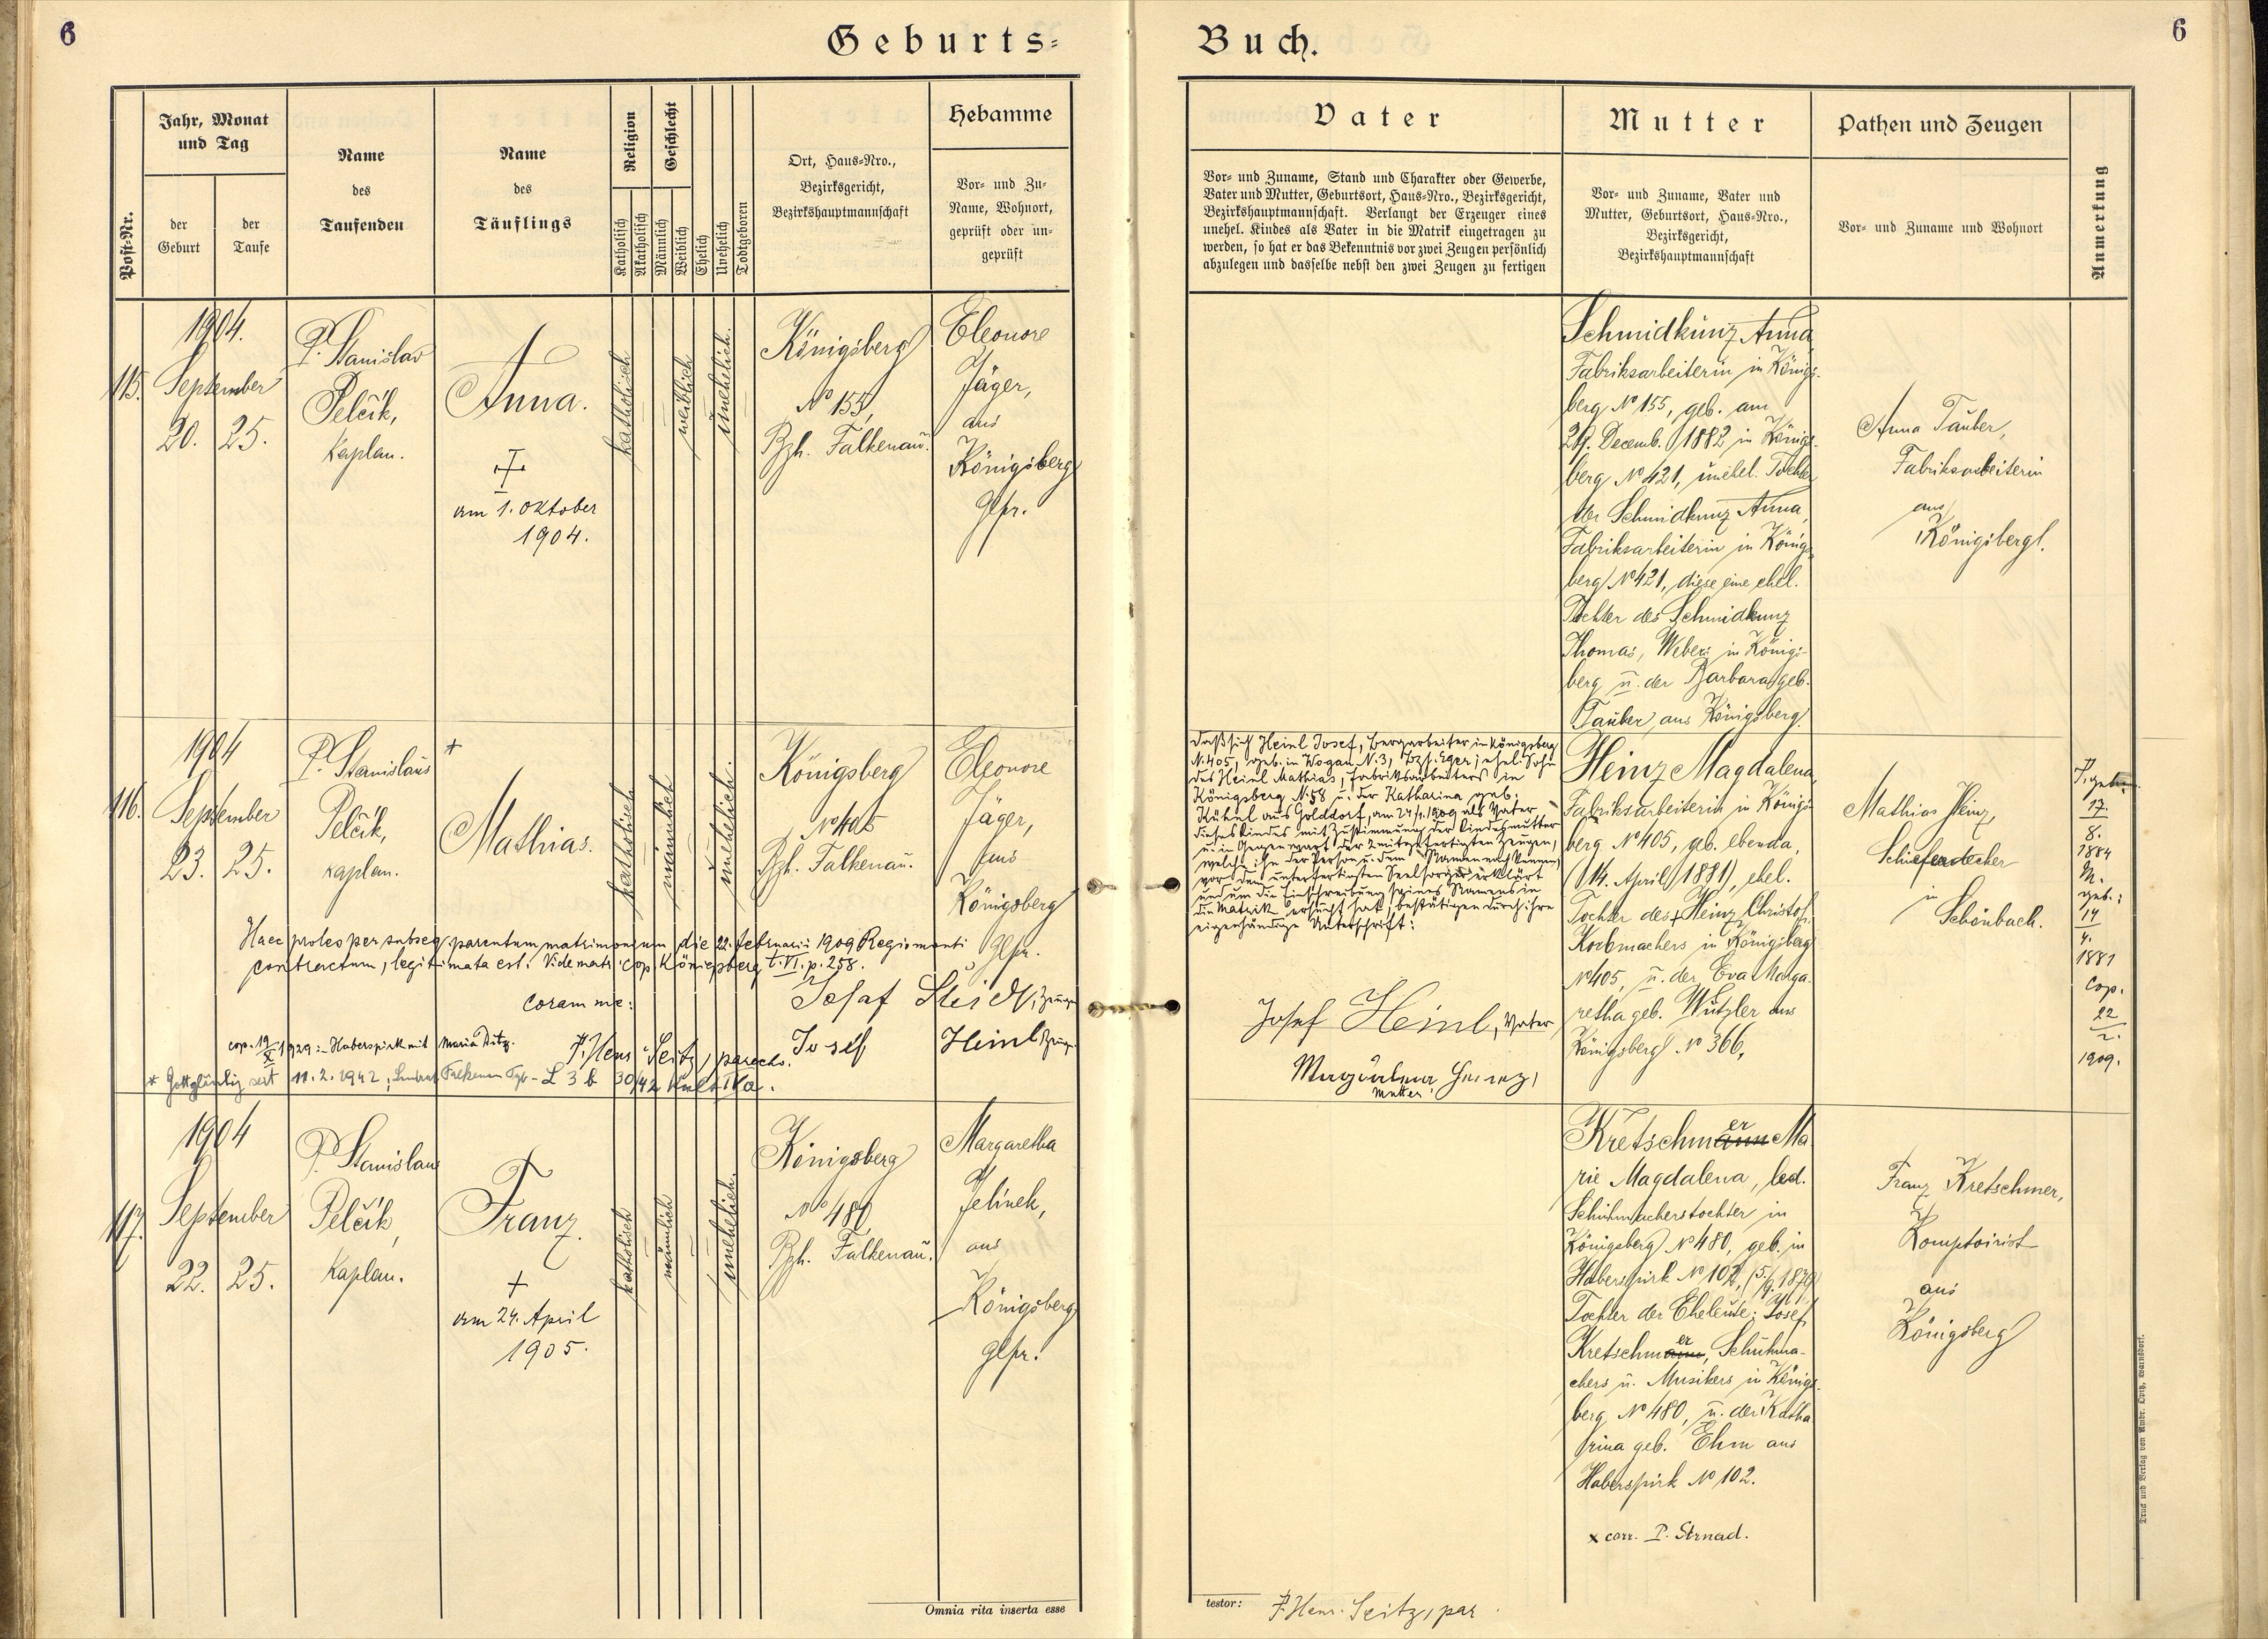 6
Geburts=
Jahr, Monat
und Tag
Post=Nr.
der
Geburt
der
Taufe
Name
des
Taufenden
Name
des
Täuflings
Religion
Katholisch
Akatholisch
Geschlecht
Männlich
Weiblich
Ehelich
Unehelich
Todtgeboren
Ort, Haus=Nro.,
Bezirksgericht,
Bezirkshauptmannschaft
Hebamme
Vor= und Zu=
Name, Wohnort,
geprüft oder un=
geprüft
115.
1904.
September
20. 25.
P. Stanislav
Pelčik,
Kaplan.
Anna.
am 1. Oktober
1904.
katholisch
weiblich
unehelich.
Königsberg
No 155,
Bzh. Falkenau.
Eleonore
Jäger,
aus
Königsberg
gepr.
116.
1904
September
23. 25.
P. Stanislaus
Pelčik,
Kaplan.
*
Mathias.
katholisch
männlich
unehelich.
Königsberg
No 405
Bzh. Falkenau.
Eleonore
Jäger,
aus
Königsberg
gepr.
Haec proles per subseq. parentum matrimonium die 22. februarii 1909 Regiomonti
contractum, legitimata est. Vide matr. cop. Königsberg t. VI. p. 258.
coram me:
P. Henr. Seitz, parocho.
Josef
Josef Heinl, Zeuge
cop. 19/X. 1929 :- Haberspirk mit Maria Ditz.
* Gottgläubig seit 11. 2. 1942; Landrat Falkenau Tgb - L 3 b 30/42 Kult IVa.
117.
1904
September
22. 25.
P. Stanislaus
Pelčik,
Kaplan.
Franz.
+
am 24. April
1905.
katholisch
männlich
unehelich.
Königsberg
No 480
Bzh. Falkenau.
Margaretha
Jelinek,
aus
Königsberg
gepr.
Omnia rita inserta esse
Buch.
6
Vater
Vor= und Zuname, Stand und Charakter oder Gewerbe,
Vater und Mutter, Geburtsort, Haus=Nro., Bezirksgericht,
Bezirkshauptmannschaft. Verlangt der Erzeuger eines
unehel. Kindes als Vater in die Matrik eingetragen zu
werden, so hat er das Bekenntnis vor zwei Zeugen persönlich
abzulegen und dasselbe nebst den zwei Zeugen zu fertigen
Mutter
Vor= und Zuname, Vater und
Mutter, Geburtsort, Haus=Nro.,
Bezirksgericht,
Bezirkshauptmannschaft
Pathen und Zeugen
Vor= und Zuname und Wohnort
Anmerkung
Schmidkunz Anna,
Fabriksarbeiterin in Königs-
berg No 155, geb. am
Decemb. 1882 in Königs-
berg No 421, unehel. Tochter
der Schmidkunz Anna,
Fabriksarbeiterin in Königs-
berg No 421, diese eine ehel.
Tochter des Schmidkunz
Thomas, Webers in Königs-
berg u. der Barbara geb.
Tauber aus Königsberg.
Anna Tauber,
Fabriksarbeiterin
aus
Königsberg.
Daß sich Heinl Josef, Bergarbeiter in Königsberg
N. 405, geb. in Wogau N. 3, Bzh. Eger, ehel. Sohn
des Heinl Mathias, Fabriksarbeiters in
Königsberg N. 58 u. der Katharina geb.
Kühnl aus Golddorf, am 24/1. 1909 als Vater
dieses Kindes mit Zustimmung der Kindesmutter
u. in Gegenwart der 2 mitgefertigten Zeugen,
welche ihn der Person u. dem Namen nach kennen,
vor dem unterfertigten Seelsorger erklärt
und um die Einschreibung seines Namens in
die Matrik ersucht hat, bestätigen durch ihre
eigenhändige Unterschrift:
Josef Heinl, Vater
Magdalena Heinz,
Mutter.
Heinz Magdalena
Fabriksarbeiterin in Königs-
berg No 405, geb. ebenda,
(14. April 1881), ehel.
Tochter des Heinz Christof,
Korbmachers in Königsberg
No 405, u. der Eva Marga-
retha geb. Wutzler aus
Königsberg No 366,
Mathias Heinz,
Schieferdecker
in
Schönbach.
P. geb.:
17.
8.
1884
M.
geb.:
14
4.
1881
Cop.
22
2.
1909.
Kretschmann er Ma-
rie Magdalena, led.
Schuhmacherstochter in
Königsberg No 480, geb. in
Haberspirk No 102, (5/9. 1879)
Tochter der Eheleute: Josef
Kretschmann er, Schuhma-
chers u. Musikers in Königs-
berg No 480, u. der Katha-
rina geb. Ehm aus
Haberspirk No 102.
x corr. P. Strnad.
Franz Kretschmer,
Komptoirist
aus
Königsberg
testor: P. Henr. Seitz, par
Druck und Verlag von Ambr. Opitz, Warnsdorf.